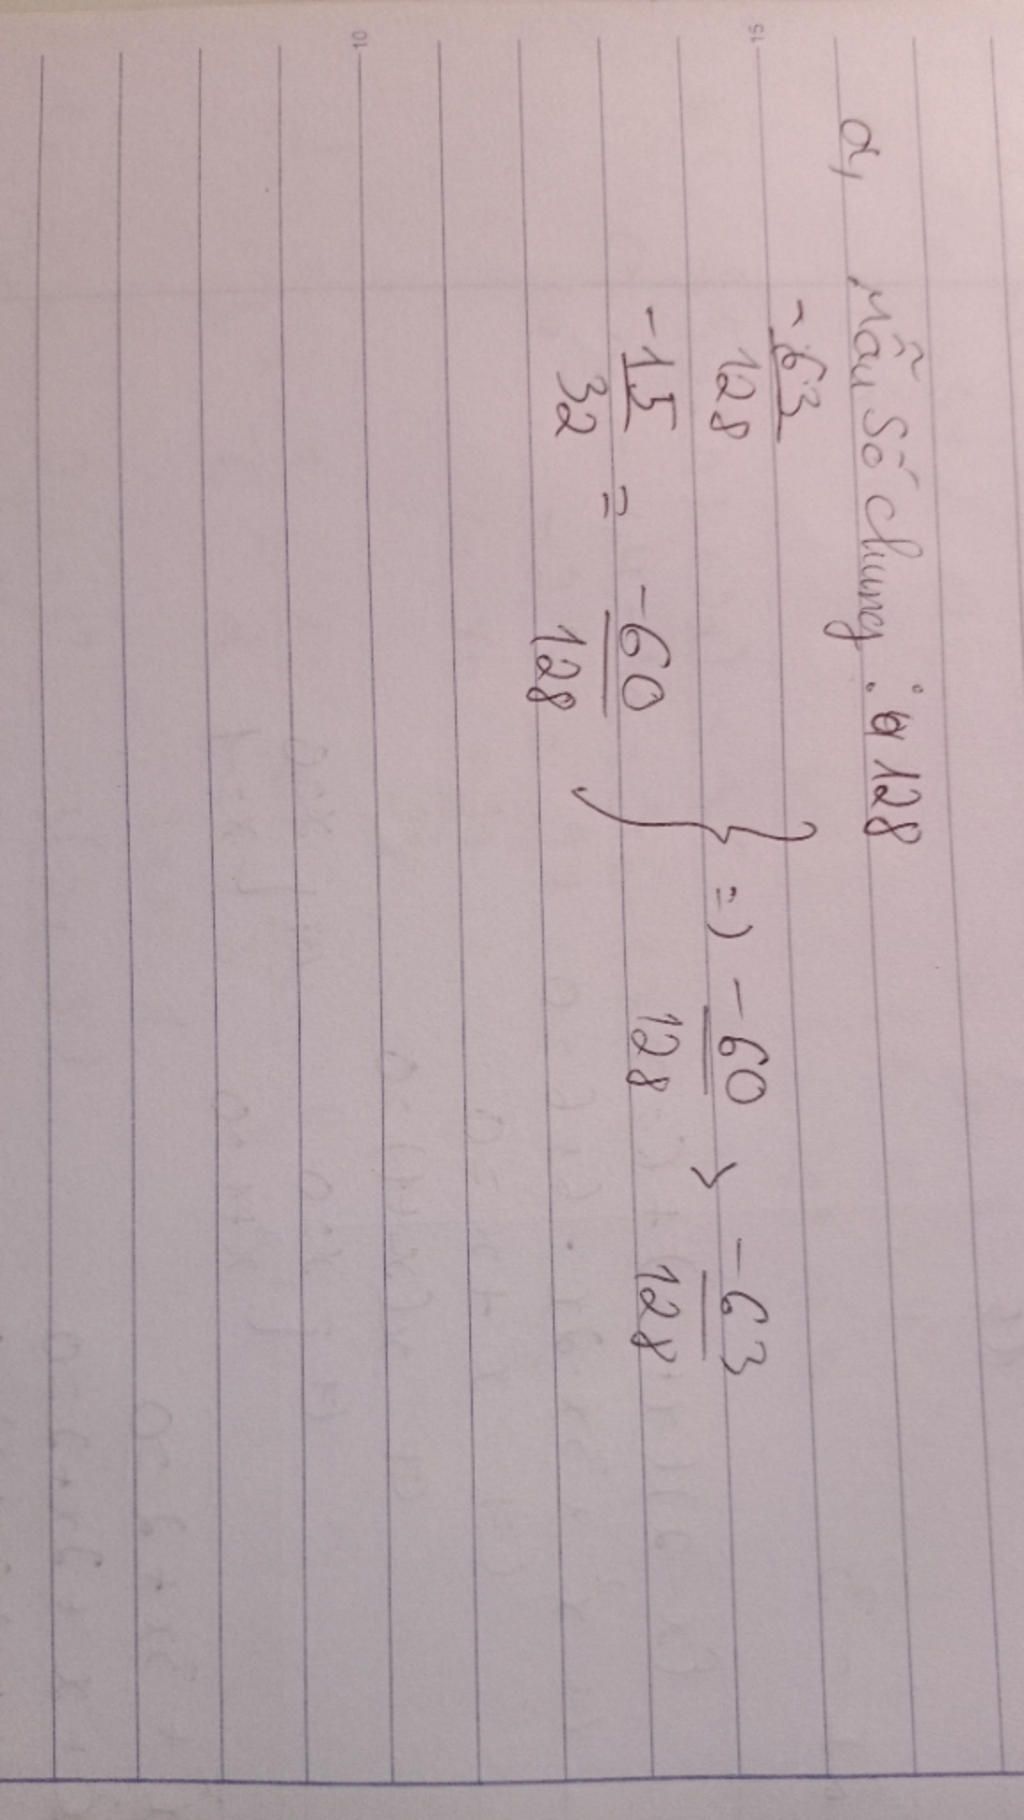 a, Mẫu số chung : 128
-63/128
-15/32 = -60/128 } => -60/128 > -63/128
10
15